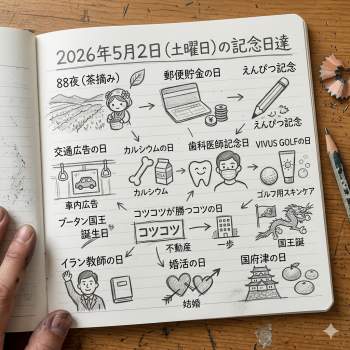 2026年5月2日(土曜日)の記念日達
88夜(茶摘み)
郵便貯金の日
えんぴつ記念
えんぴつ記念
交通広告の日
カルシウムの日
歯科医師記念日
VIVUS GOLFの日
車内広告
カルシウム
ゴルフ用スキンケア
ブータン国王
誕生日
コツコツが勝つコツの日
コツコツ
不動産
一歩
国王誕
イラン教師の日
婚活の日
国府津の日
姑婚